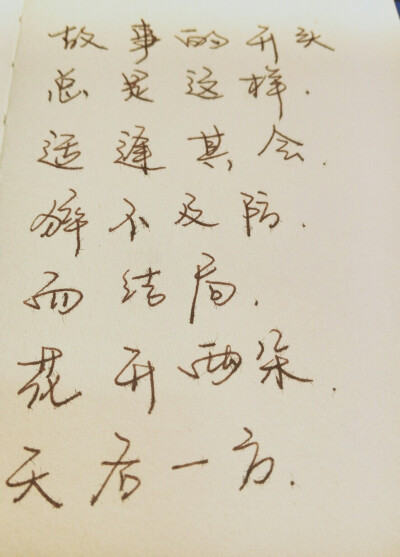 故事的开头
总是这样.
适逢其会.
猝不及防.
而结局.
花开两朵.
天各一方.